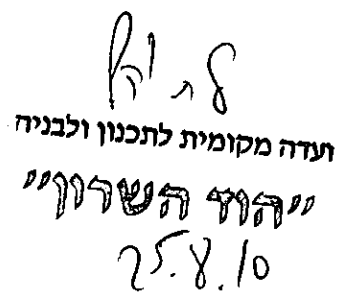 ועדה מקומית לתכנון ולבניה
"הוד השרון"
25.8.10